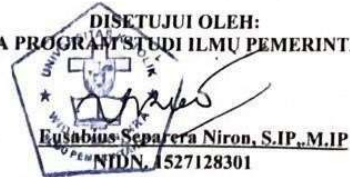 DISETUJUI OLEH:
A PROGRAM STUDI ILMU PEMERINT
UNIVERSITAS KATOLIK
Eusabius Separera Niron, S.IP,.M.IP
NIDN. 1527128301